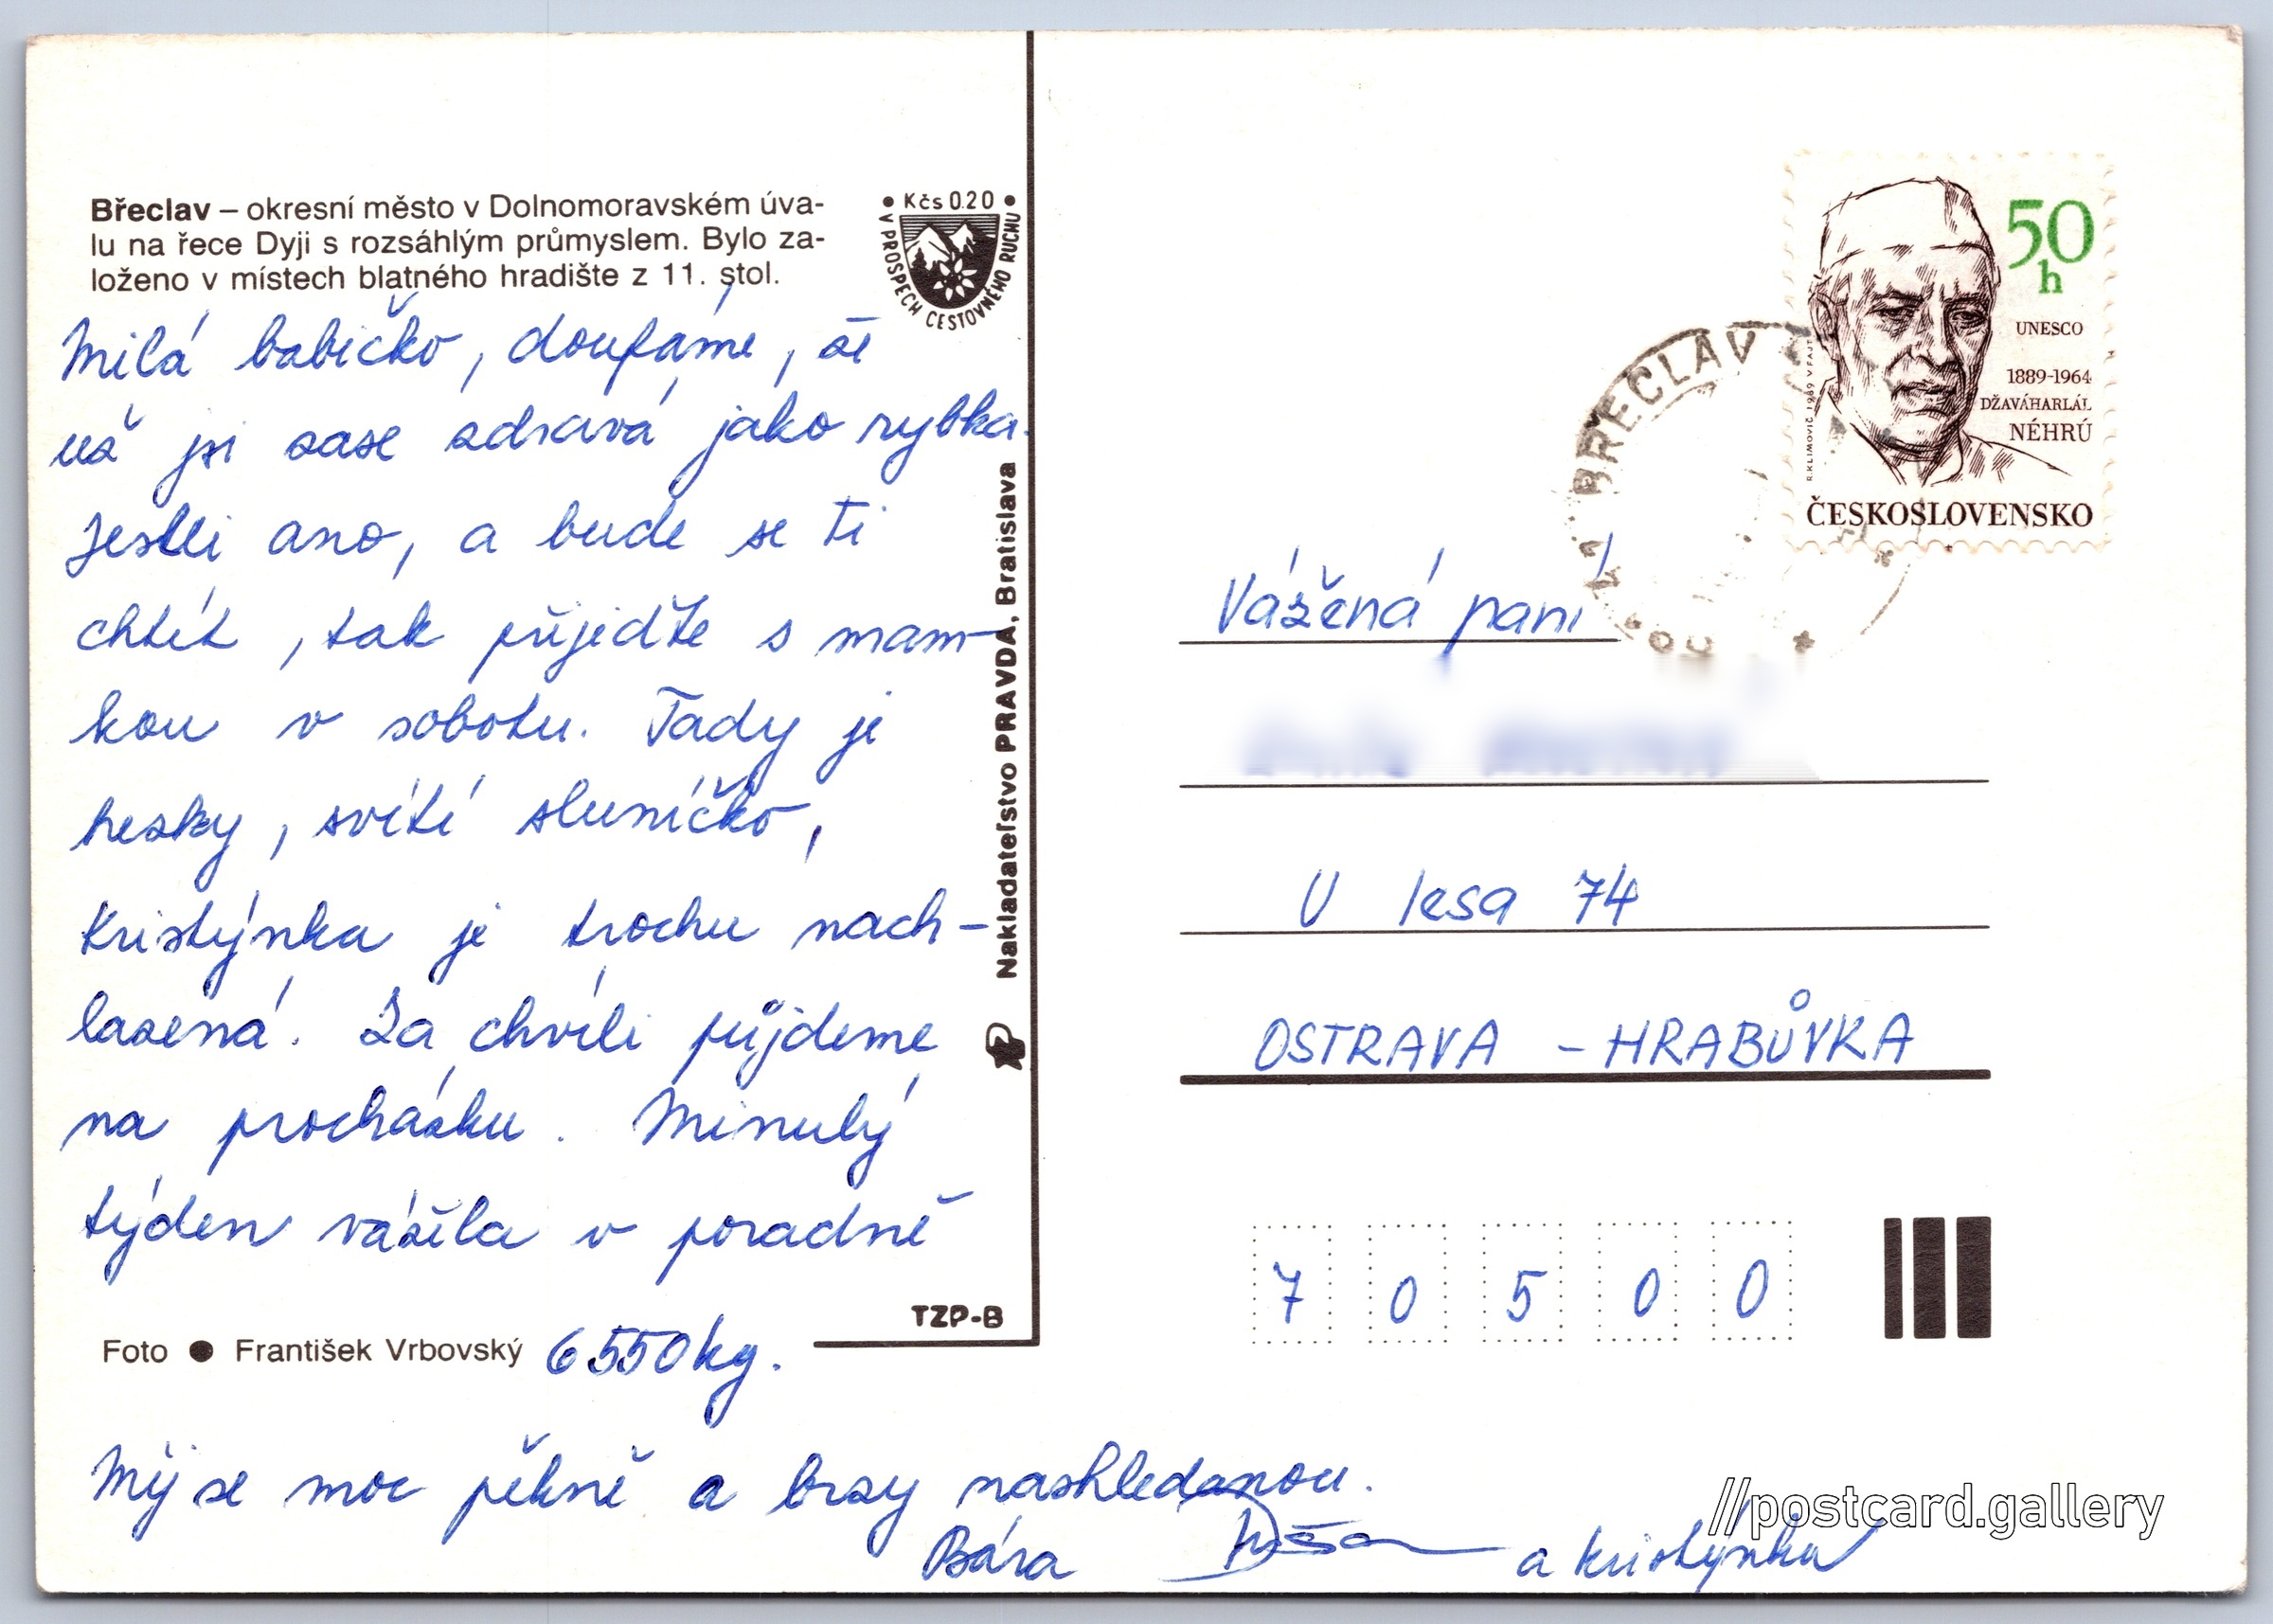 Břeclav – okresní město v Dolnomoravském úva-
lu na řece Dyji s rozsáhlým průmyslem. Bylo za-
loženo v místech blatného hradište z 11. stol.
• Kčs 0.20 •
V PROSPECH CESTOVNÉHO RUCHU
Milá babičko, doufáme, že
už jsi zase zdravá jako rybka.
Jestli ano, a bude se Ti
chtít, tak přijeďte s mam-
kou v sobotu. Tady je
hezky, svítí sluníčko,
Kristýnka je trochu nach-
lazená. Za chvíli půjdeme
na procházku. Minulý
týden vážila v poradně
6550kg.
Měj se moc pěkně a brzy nashledanou.
Bára
a Kristýnka
Foto ● František Vrbovský
TZP-B
Nakladateľstvo PRAVDA, Bratislava
50
h
UNESCO
1889-1964
DŽAVÁHARLÁL
NÉHRÚ
R. KLIMOVIČ 1989 V FAJT
ČESKOSLOVENSKO
BŘECLAV
Vážená paní
U lesa 74
OSTRAVA - HRABŮVKA
7 0 5 0 0
//postcard.gallery